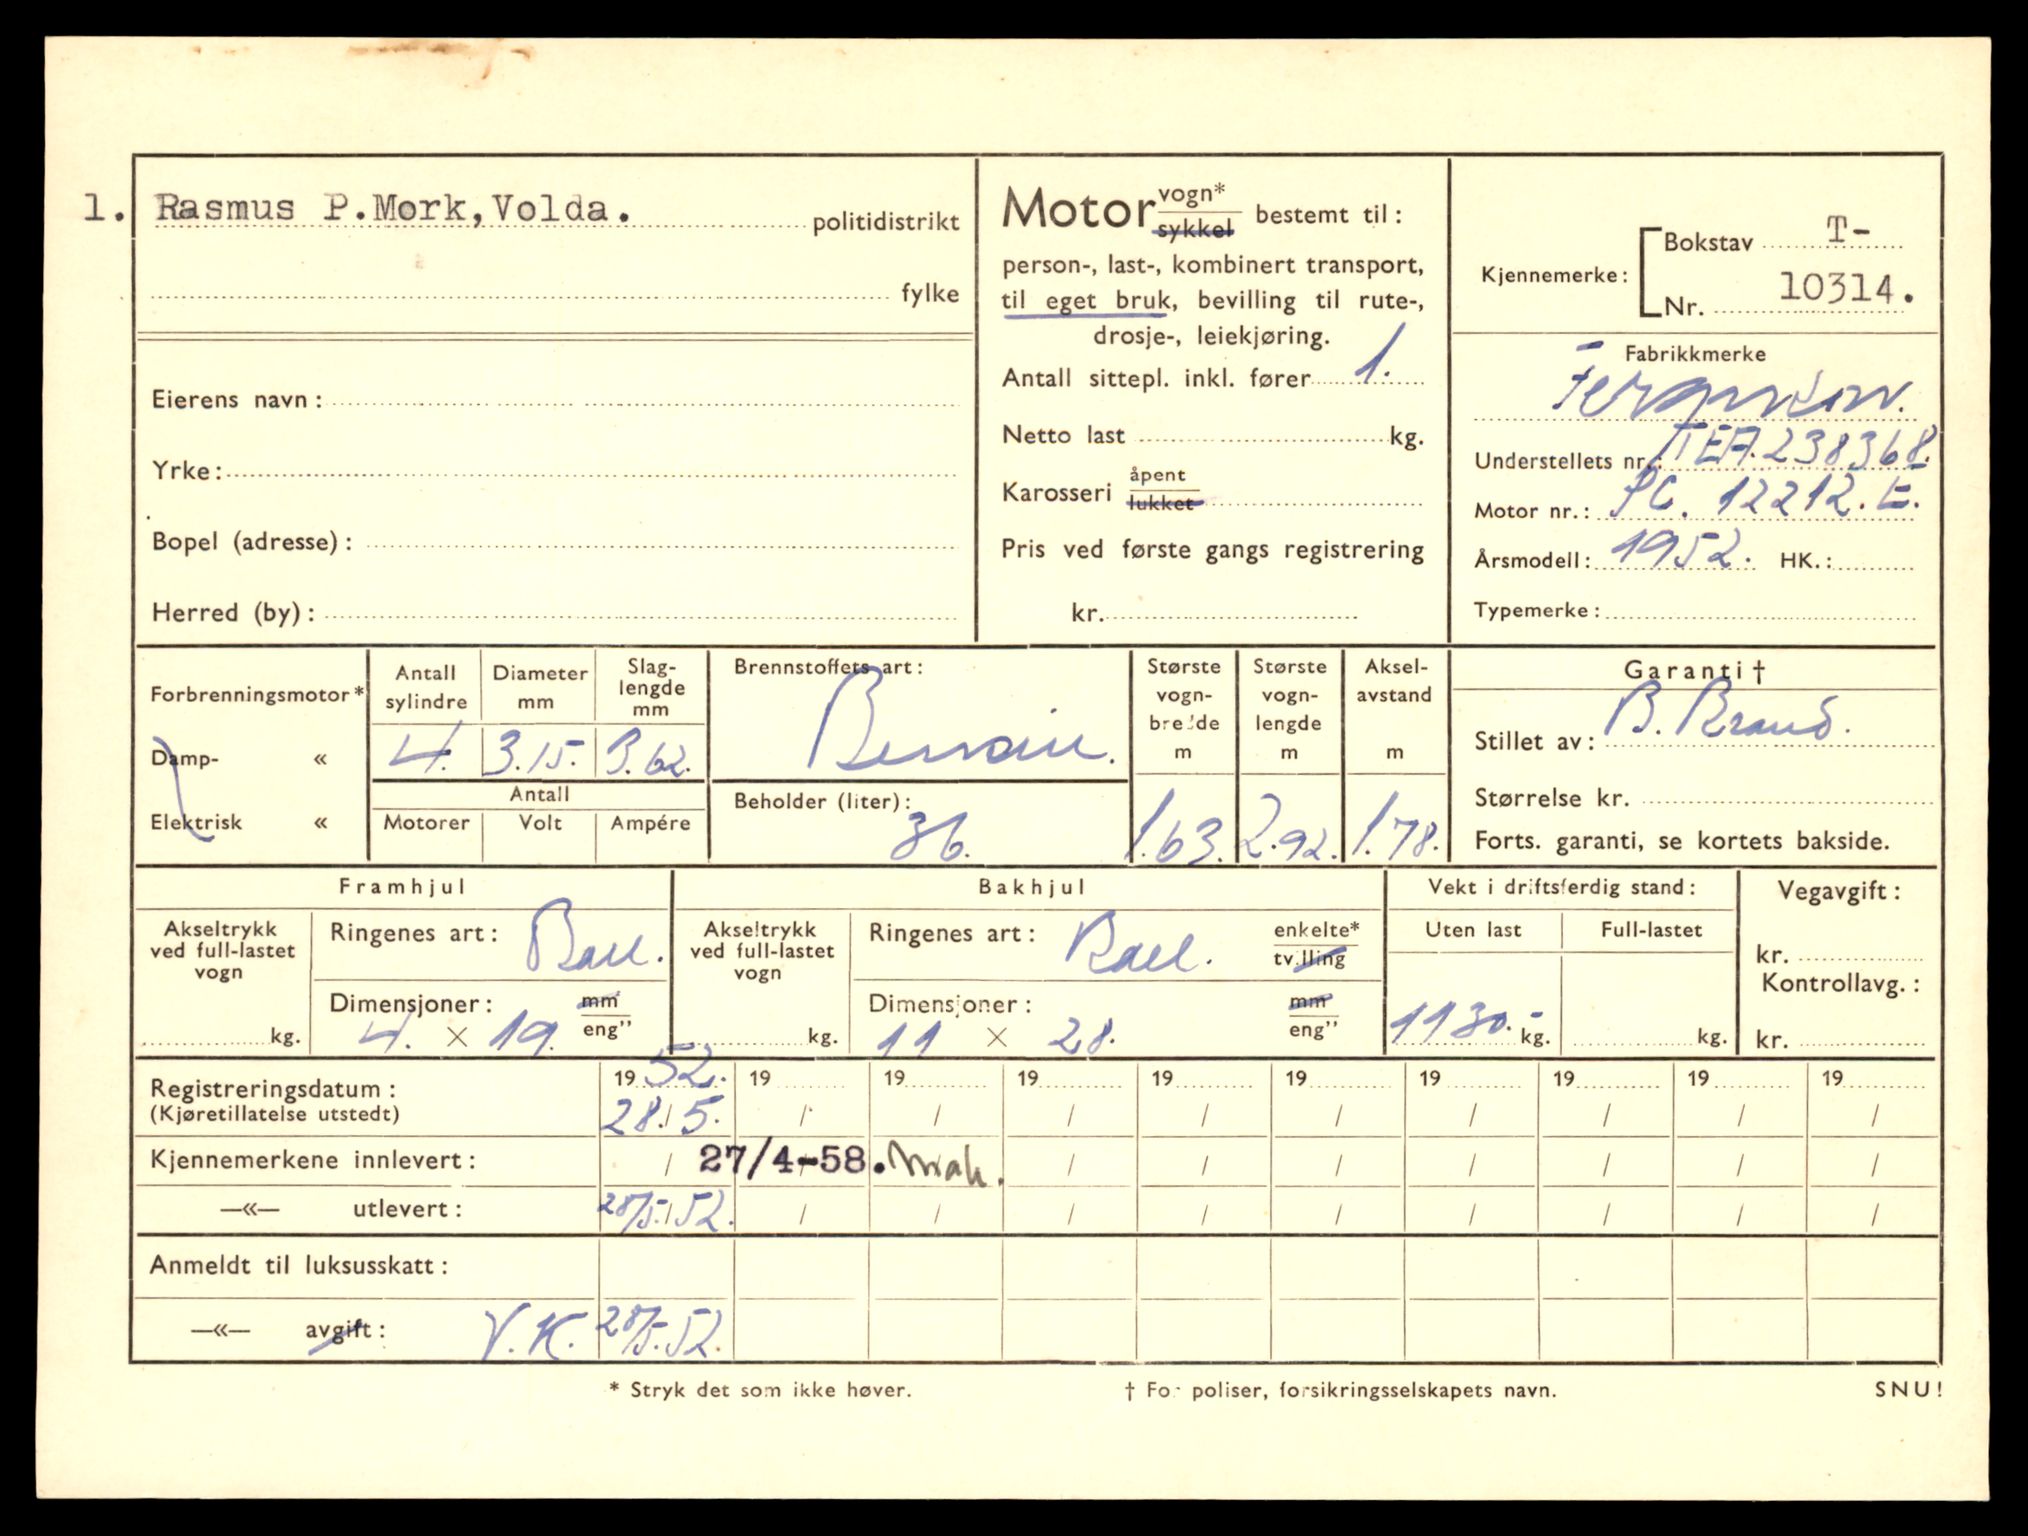 1. Rasmus P.Mork,Volda. politidistrikt
fylke
Eierens navn:
Yrke:
Bopel (adresse):
Herred (by):
Motor vogn* sykkel bestemt til:
person-, last-, kombinert transport,
til eget bruk, bevilling til rute-,
drosje-, leiekjøring.
Antall sittepl. inkl. fører 1.
Netto last kg.
Karosseri åpent lukket
Pris ved første gangs registrering
kr.
Kjennemerke: Bokstav T-
Nr. 10314.
Fabrikkmerke
Ferguson.
Understellets nr.: TEA.238368.
Motor nr.: 12212.E.
Årsmodell: 1952. HK.:
Typemerke:
Forbrenningsmotor*
Damp- «
Elektrisk «
Antall sylindre
4.
Diameter mm
3.15.
Slag-lengde mm
3.62.
Antall
Motorer Volt Ampére
Brennstoffets art:
Bensin.
Beholder (liter):
36.
Største vogn-bredde m
1.63.
Største vogn-lengde m
2.92.
Aksel-avstand m
1.78.
Garanti†
Stillet av: B. Brand.
Størrelse kr.
Forts. garanti, se kortets bakside.
Framhjul
Akseltrykk ved full-lastet vogn
kg.
Ringenes art: Ball.
Dimensjoner: mm
4. × 19. eng”
Bakhjul
Akseltrykk ved full-lastet vogn
kg.
Ringenes art: Ball. enkelte* tvilling
Dimensjoner: mm
11 × 28. eng”
Vekt i driftsferdig stand:
Uten last Full-lastet
1130.- kg. kg.
Vegavgift:
kr.
Kontrollavg.:
kr.
Registreringsdatum: 19 52. 19 19 19 19 19 19 19 19 19
(Kjøretillatelse utstedt) 28./5. / / / / / / / / /
Kjennemerkene innlevert: / 27/4-58. / / / / / / /
—«— utlevert: 28/5.52. / / / / / / / / /
Anmeldt til luksusskatt:
—«— avgift: V.K. 28/5.52.
* Stryk det som ikke høver. † For poliser, forsikringsselskapets navn. SNU!